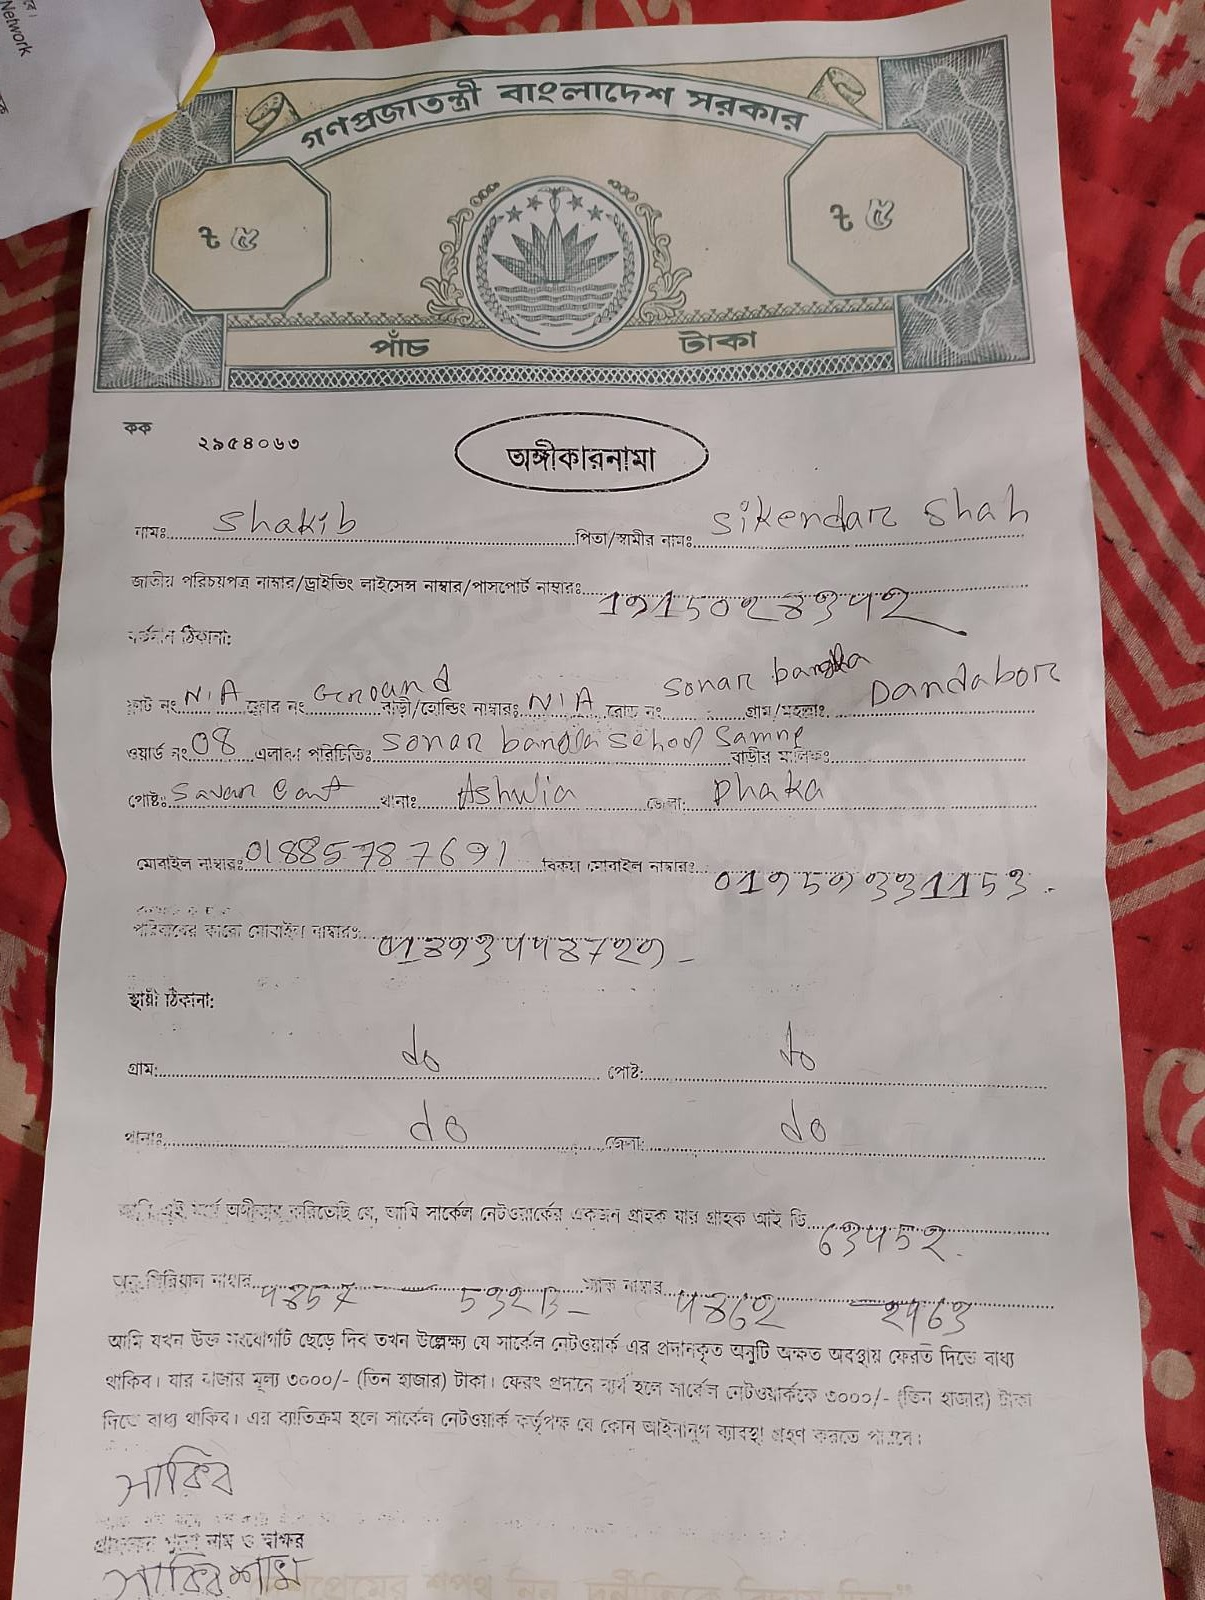 Network
গণপ্রজাতন্ত্রী বাংলাদেশ সরকার
৳ ৫ ৳ ৫
পাঁচ টাকা
কক ২৯৫৪০৬৩
অঙ্গীকারনামা
নামঃ Shakib পিতা/স্বামীর নামঃ Sikendar Shah
জাতীয় পরিচয়পত্র নাম্বার/ড্রাইভিং লাইসেন্স নাম্বার/পাসপোর্ট নাম্বারঃ
বর্তমান ঠিকানা:
ফ্লাট নং N/A ফ্লোর নং Ground বাড়ী/হোল্ডিং নাম্বারঃ N/A রোড নং Sonar bangla গ্রাম/মহল্লাঃ Dandabor
ওয়ার্ড নং 08 এলাকা পরিচিতিঃ Sonar bangla School Samne বাড়ীর মালিকঃ
পোষ্টঃ Savar Cant থানাঃ Ashulia জেলা: Dhaka
মোবাইল নাম্বারঃ 01885787691 বিকল্প মোবাইল নাম্বারঃ
পরিবারের কারো মোবাইল নাম্বারঃ
স্থায়ী ঠিকানা:
গ্রাম: do পোষ্ট: do
থানাঃ do জেলা: do
আমি এই মর্মে অঙ্গীকার করিতেছি যে, আমি সার্কেল নেটওয়ার্কের একজন গ্রাহক যার গ্রাহক আই ডি
অনু সিরিয়াল নাম্বার ম্যাক নাম্বার
আমি যখন উক্ত সংযোগটি ছেড়ে দিব তখন উল্লেক্ষ্য যে সার্কেল নেটওয়ার্ক এর প্রদানকৃত অনুটি অক্ষত অবস্থায় ফেরত দিতে বাধ্য
থাকিব। যার বাজার মূল্য ৩০০০/- (তিন হাজার) টাকা। ফেরৎ প্রদানে ব্যর্থ হলে সার্কেল নেটওয়ার্ককে ৩০০০/- (তিন হাজার) টাকা
দিতে বাধ্য থাকিব। এর ব্যতিক্রম হলে সার্কেল নেটওয়ার্ক কর্তৃপক্ষ যে কোন আইনানুগ ব্যাবস্থা গ্রহণ করতে পারবে।
সাকিব
গ্রাহকের পুরো নাম ও স্বাক্ষর
সাকিব শাহ